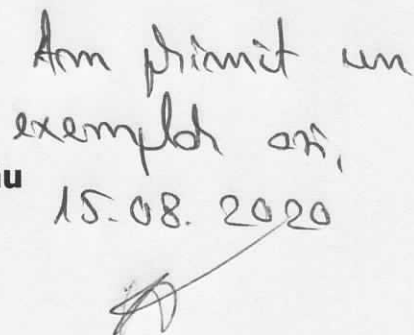 Am primit un
exemplar azi,
au
15.08.2020